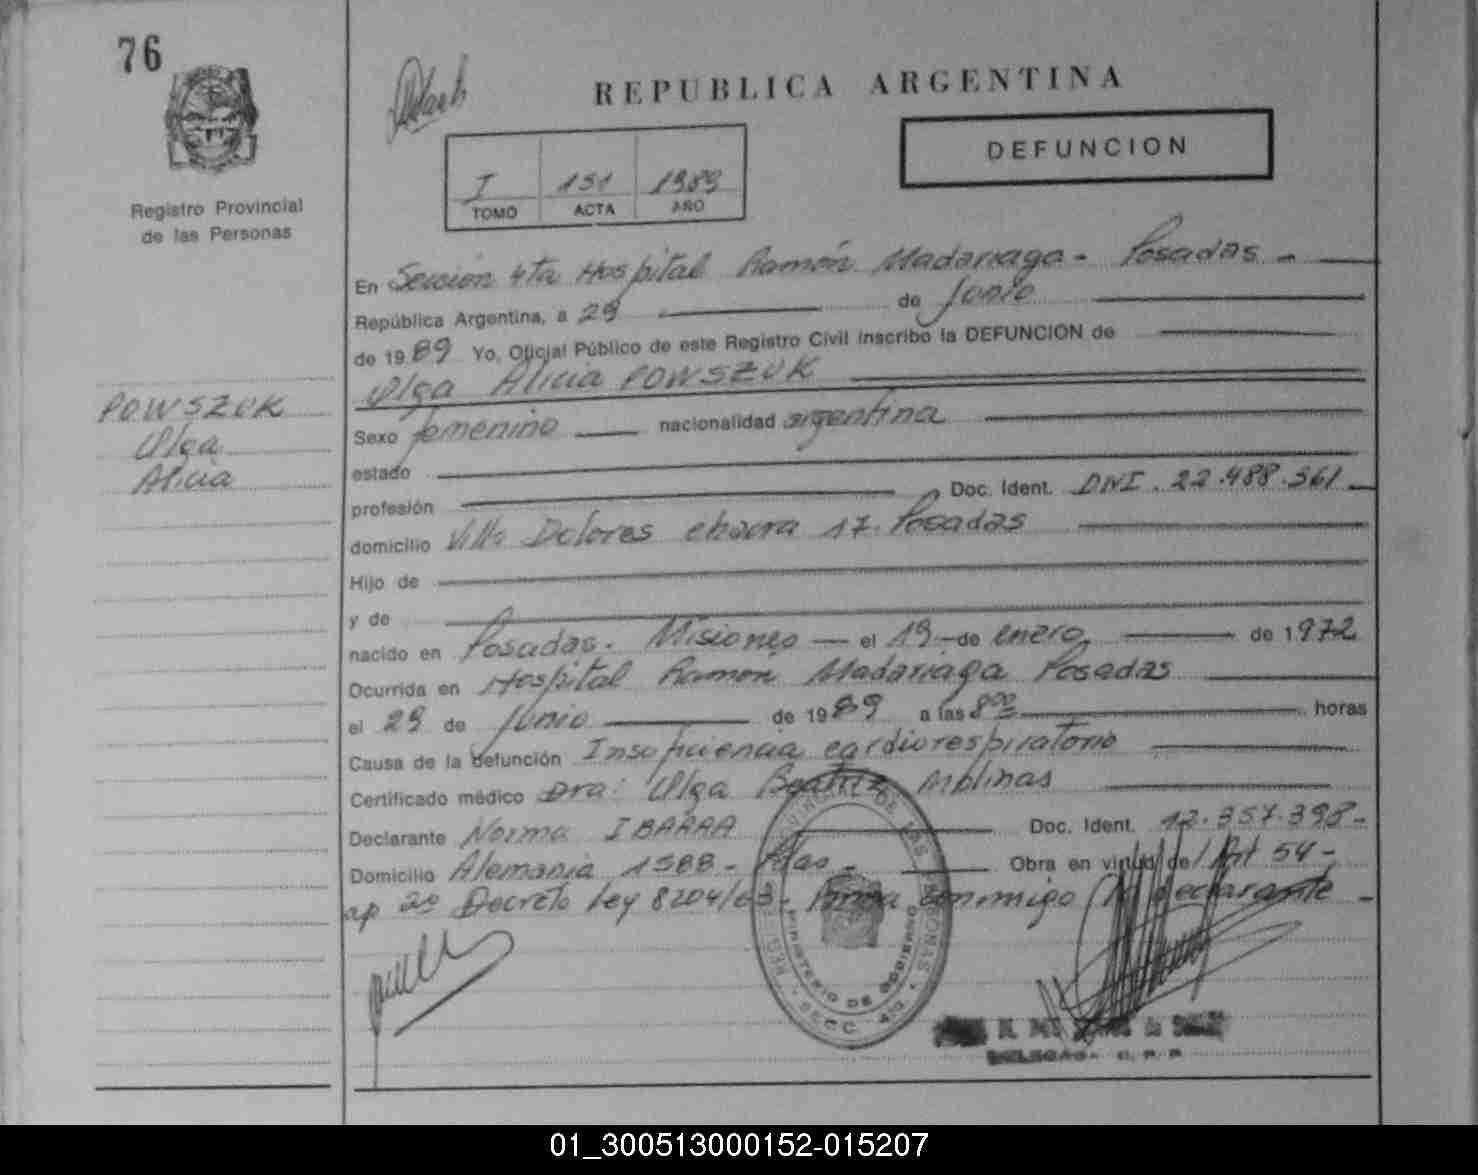 76
REPUBLICA ARGENTINA
DEFUNCION
I 151 1989
TOMO ACTA AÑO
Registro Provincial
de las Personas
En Sección 4ta Hospital Ramón Madariaga - Posadas -
República Argentina, a 29 de Junio
de 1989 Yo, Oficial Público de este Registro Civil inscribo la DEFUNCION de
Olga Alicia POWSZUK
POWSZUK
Olga
Alicia
Sexo femenino nacionalidad argentina
estado
profesión Doc. Ident. DNI. 22.488.361
domicilio Villa Dolores chacra 17. Posadas
Hijo de
y de
nacido en Posadas. Misiones el 19 de enero de 1972
Ocurrida en Hospital Ramón Madariaga Posadas
el 29 de Junio de 1989 a las 8 horas
Causa de la defunción Insuficiencia cardiorespiratorio
Certificado médico Dra: Olga Beatriz Molinas
Declarante Norma IBARRA Doc. Ident. 12.357.398-
Domicilio Alemania 1588 - Pdas - Obra en virtud de Art 54 -
ap 2º Decreto ley 8204/63. Firma conmigo la declarante -
MINISTERIO DE GOBIERNO
SECC. 4a
01_300513000152-015207